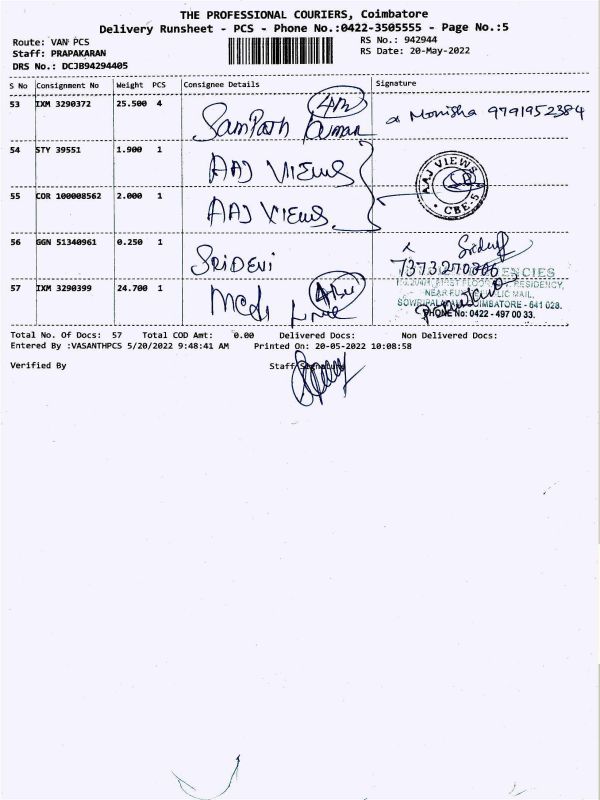 THE PROFESSIONAL COURIERS, Coimbatore
Delivery Runsheet - PCS - Phone No.:0422-3505555 - Page No.:5
Route: VAN PCS
Staff: PRAPAKARAN
DRS No.: DCJB94294405
RS No.: 942944
RS Date: 20-May-2022
S No Consignment No Weight PCS Consignee Details Signature
53 IXM 3290372 25.500 4 Sampath Kumar Monisha 9791952384
54 STY 39551 1.900 1 AAJ VIEWS
55 COR 100008562 2.000 1 AAJ VIEWS
AAJ VIEWS
CBE-5
56 GGN 51340961 0.250 1 SRIDEVI Sridevi
7373270806
57 IXM 3290399 24.700 1 Medi Line
ENCIES
FIRST FLOOR RESIDENCY,
NEAR MAIL,
COIMBATORE - 641 028.
PHONE No: 0422 - 497 00 33.
Total No. Of Docs: 57 Total COD Amt: 0.00 Delivered Docs: Non Delivered Docs:
Entered By :VASANTHPCS 5/20/2022 9:48:41 AM Printed On: 20-05-2022 10:08:58
Verified By Staff Signature